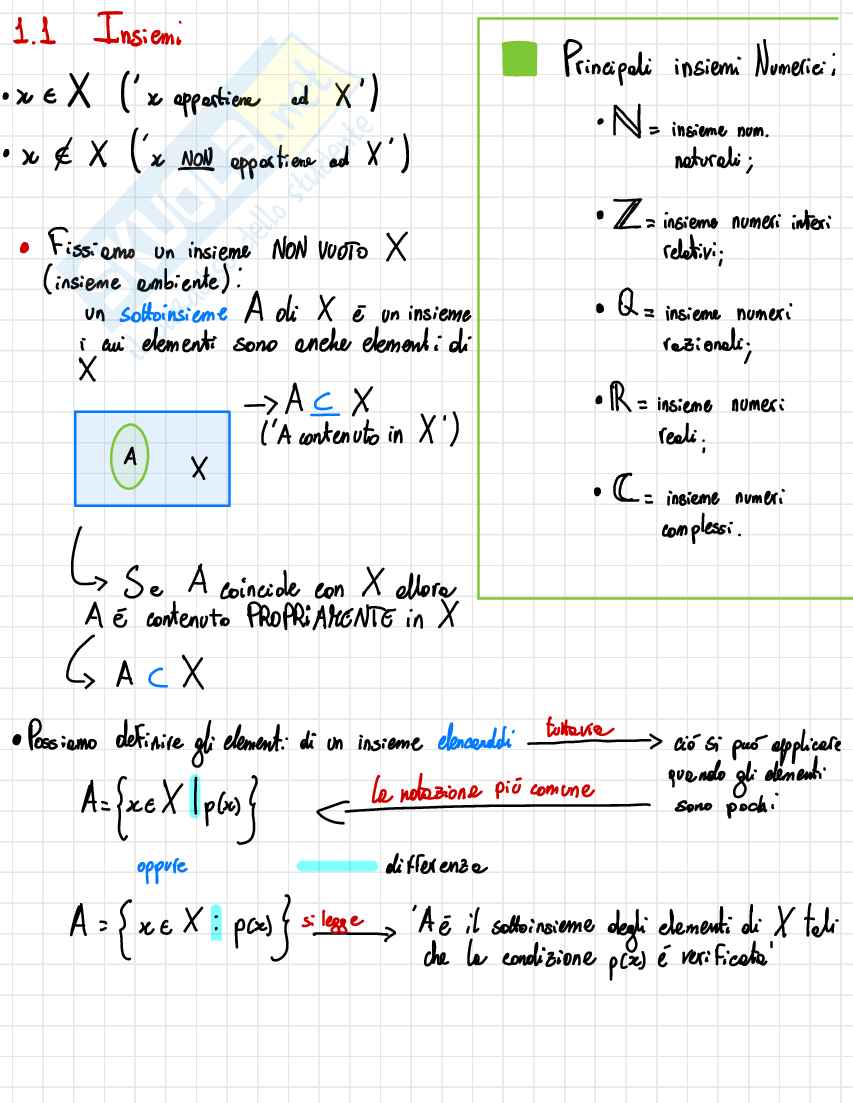 1.1 Insiemi
• x ∈ X ('x appartiene ad X')
• x ∉ X ('x NON appartiene ad X')
• Fissiamo un insieme NON VUOTO X
(insieme ambiente):
un sottoinsieme A di X é un insieme
i cui elementi sono anche elementi di
X
→ A ⊆ X
('A contenuto in X')
A X
Se A coincide con X allora
A é contenuto PROPRIAMENTE in X
A ⊂ X
Principali insiemi Numerici;
• ℕ = insieme num.
naturali;
• ℤ = insieme numeri interi
relativi;
• ℚ = insieme numeri
razionali;
• ℝ = insieme numeri
reali;
• ℂ = insieme numeri
complessi.
• Possiamo definire gli elementi di un insieme elencandoli tuttavia → ció si puó applicare
quando gli elementi
sono pochi
la notazione piú comune
A = {x ∈ X | p(x)}
oppure
differenza
A = {x ∈ X : p(x)} si legge → 'A é il sottoinsieme degli elementi di X tali
che la condizione p(x) é verificata'
SKUOLA.net